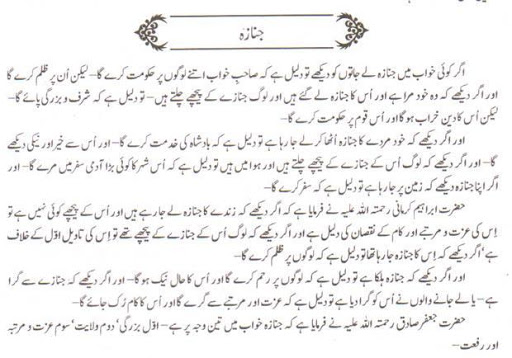 جنازہ
اگر کوئی خواب میں جنازہ لے جاتوں کو دیکھے تو دلیل ہے کہ صاحبِ خواب اتنے لوگوں پر حکومت کرے گا- لیکن اُن پر ظلم کرے گا
اور اگر دیکھے کہ وہ خود مرا ہے اور اُس کا جنازہ لے گئے ہیں اور لوگ جنازے کے پیچھے چلتے ہیں- تو دلیل ہے کہ شرف و بزرگی پائے گا-
لیکن اُس کا دین خراب ہو گا اور اُس قوم پر حکومت کرے گا-
اور اگر دیکھے کہ خود مردے کا جنازہ اُٹھا کر لے جا رہا ہے تو دلیل ہے کہ بادشاہ کی خدمت کرے گا- اور اُس سے خیر اور نیکی دیکھے
گا- اور اگر دیکھے کہ لوگ اُس کے جنازے کے پیچھے چلتے ہیں اور ہوا میں ہیں تو دلیل ہے کہ اُس شہر کا کوئی بڑا آدمی سفر میں مرے گا- اور
اگر اپنا جنازہ دیکھے کہ زمین پر جا رہا ہے تو دلیل ہے کہ سفر کرے گا-
حضرت ابراہیم کرمانی رحمتہ اللہ علیہ نے فرمایا ہے کہ اگر دیکھے کہ زندے کا جنازہ لے جا رہے ہیں اور اُس کے پیچھے کوئی نہیں ہے تو
اِس کی عزت و مرتبے اور کام کے نقصان کی دلیل ہے اور اگر دیکھے کہ لوگ اُس کے جنازے کے پیچھے تھے تو اِس کی تاویل اوّل کے خلاف
ہے' اگر دیکھے کہ اِس کا جنازہ جا رہا تھا تو دلیل ہے کہ لوگوں پر ظلم کرے گا-
اور اگر دیکھے کہ جنازہ ہلکا ہے تو دلیل ہے کہ لوگوں پر رحم کرے گا اور اُس کا حال نیک ہو گا- اور اگر دیکھے کہ جنازے سے گرا
ہے- یا لے جانے والوں نے اُس کو گرا دیا ہے تو دلیل ہے کہ عزت اور مرتبے سے گرے گا اور اُس کا کام رُک جائے گا-
حضرت جعفر صادق رحمتہ اللہ علیہ نے فرمایا ہے کہ جنازہ خواب میں تین وجہ پر ہے- اوّل بزرگی' دوم ولایت' سوم عزت و مرتبہ
اور رفعت-